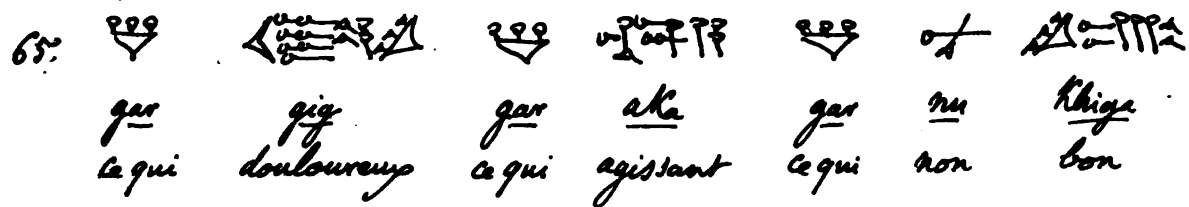 65. 𒃻 𒃻 𒃻 𒉡 𒄭𒂵
gar gig gar aka gar nu khiga
ce qui douloureux ce qui agissant ce qui non bon